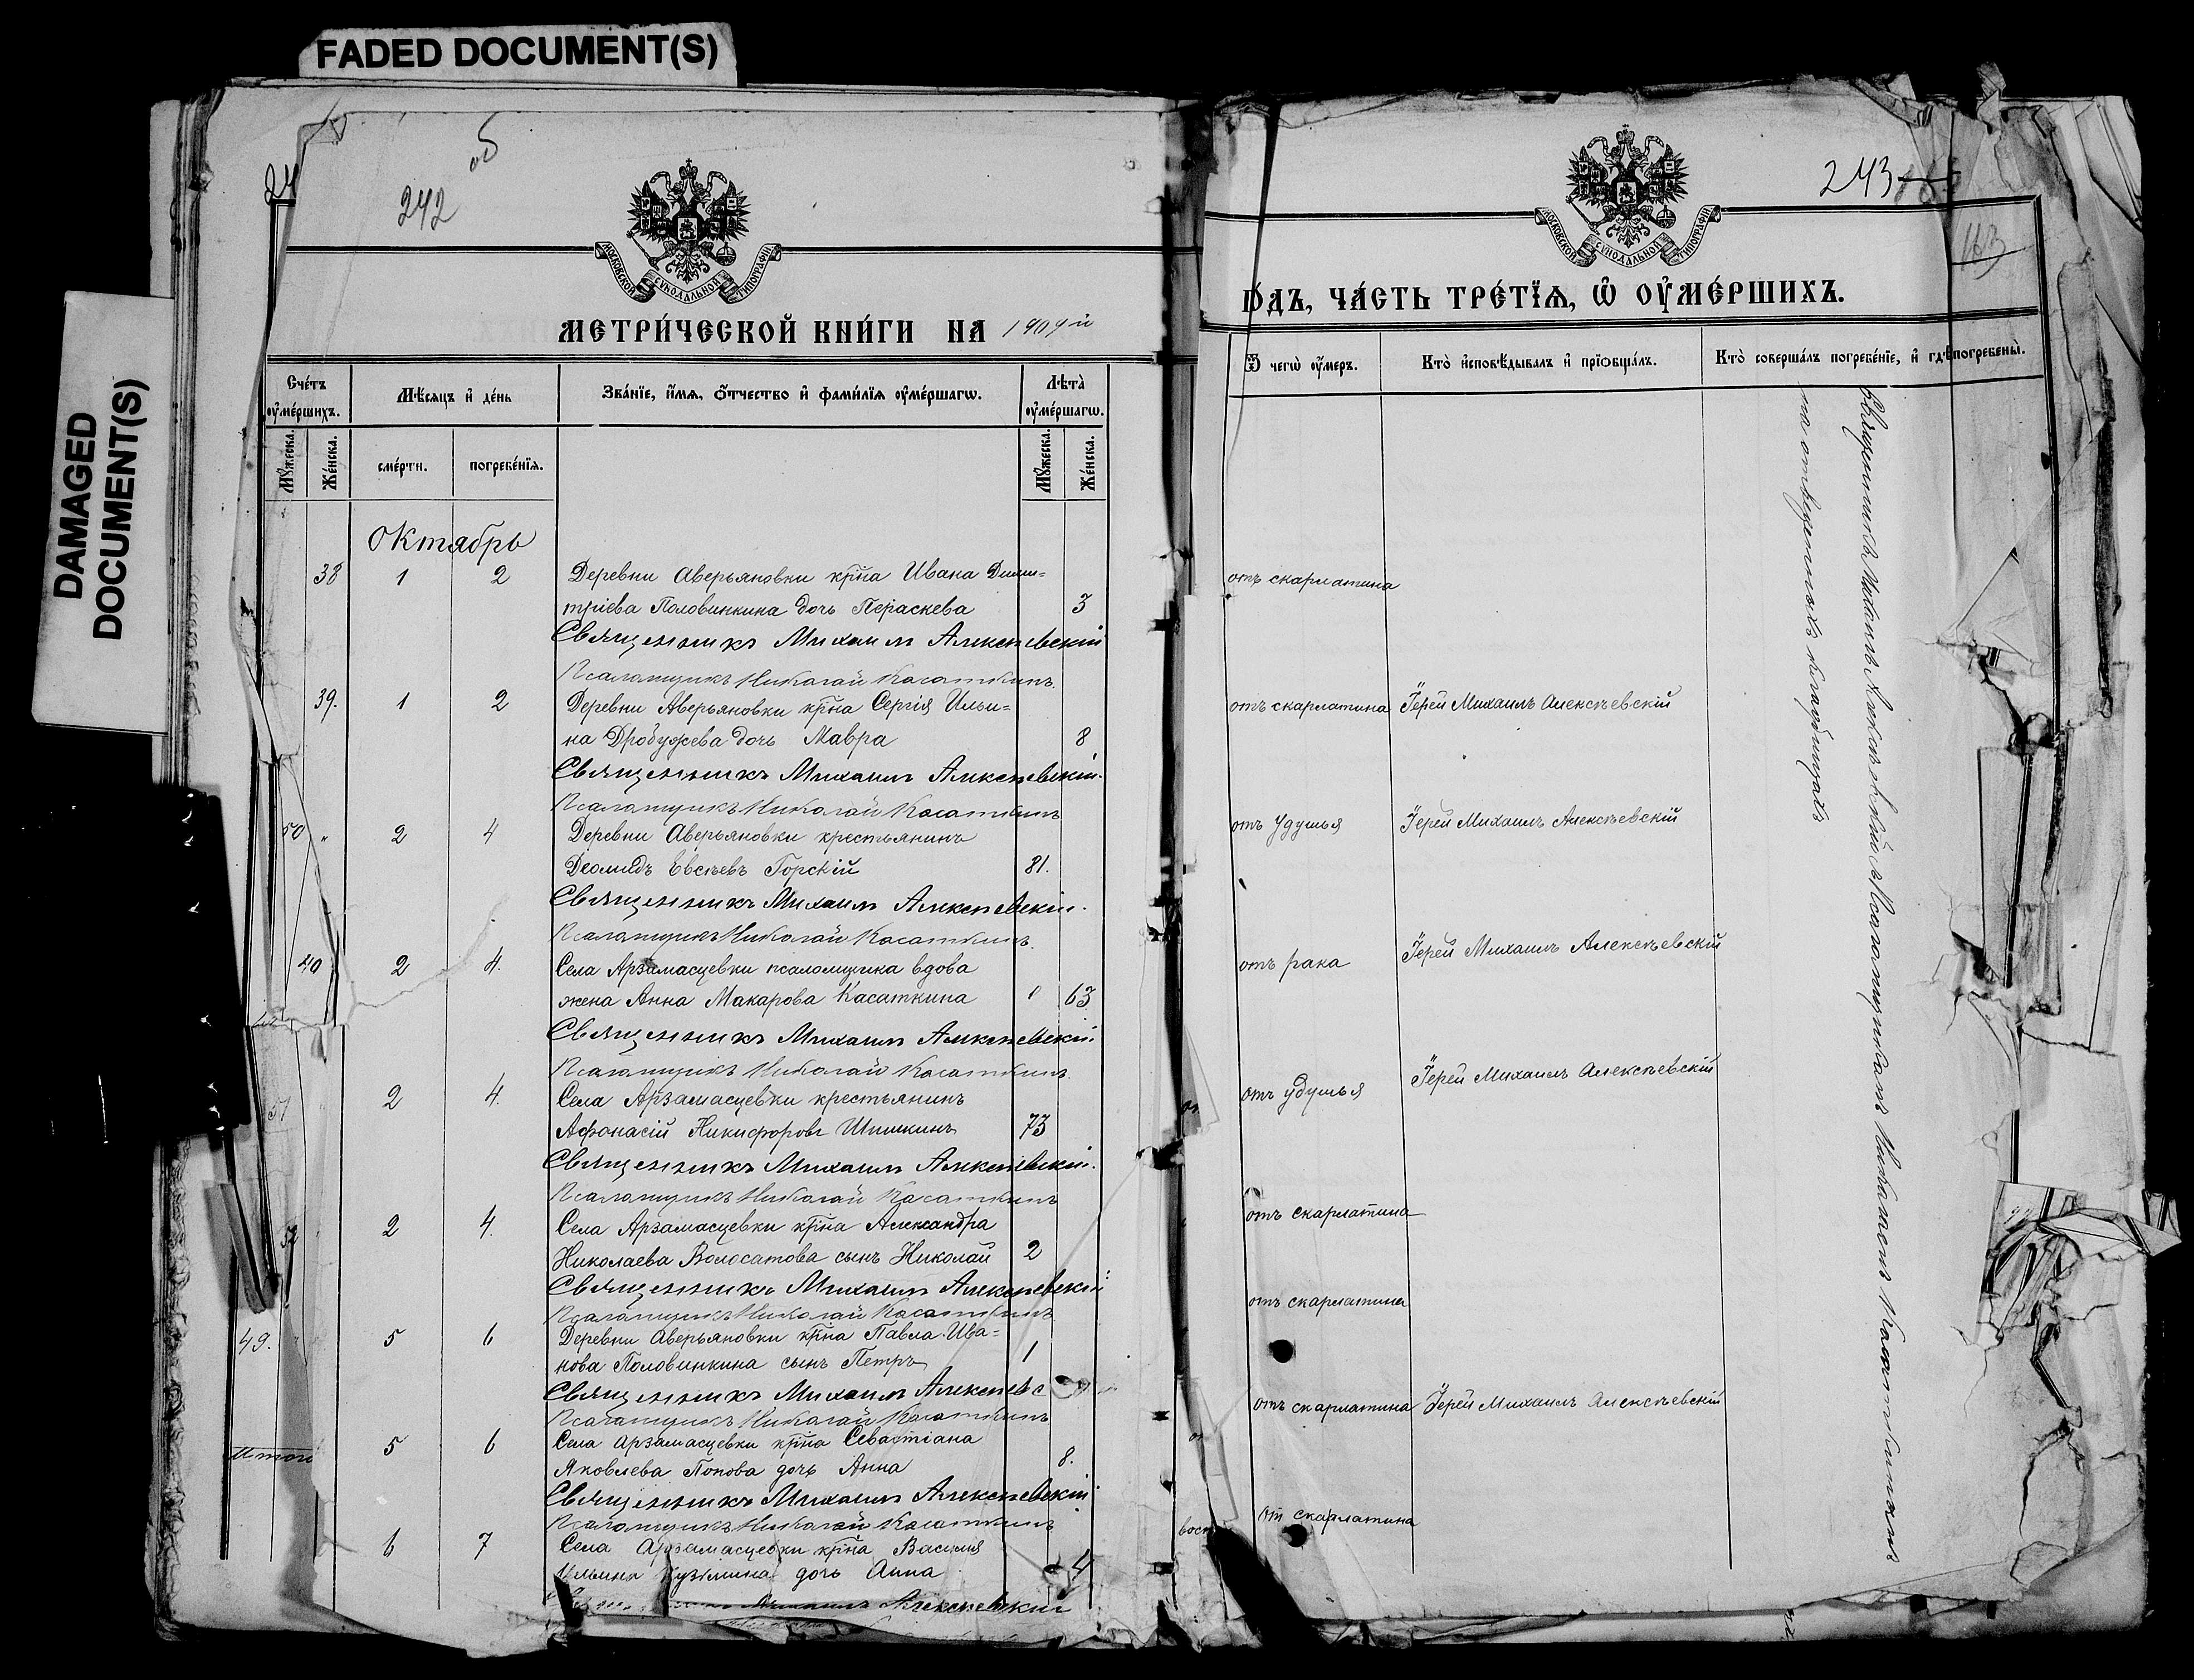 FADED DOCUMENT(S)
DAMAGED
DOCUMENT(S)
242 об
МОСКОВСКОЙ СѴНОДАЛЬНОЙ ТИПОГРАФІИ
МЕТРИ́ЧЕСКОЙ КНИ́ГИ НА 1909 й
Сче́тъ ᲂу҆ме́ршихъ.
Мѣ́сяцъ и҆ де́нь
Зва́нїе, и҆́мѧ, ѻ҆́тчество и҆ фами́лїѧ ᲂу҆ме́ршагѡ.
Лѣ́та̀ ᲂу҆ме́ршагѡ.
Мꙋ́жеска.
Же́нска.
сме́рти.
погребе́нїѧ.
Мꙋ́жеска.
Же́нска.
Октябрь
38 1 2 Деревни Аверьяновки кр̃на Ивана Дими=
тріева Половинкина дочь Параскева 3
Священникъ Михаилъ Алексѣевскій
Псаломщикъ Николай Касаткинъ.
39. 1 2 Деревни Аверьяновки кр̃на Сергія Ильи=
на Дробужева дочь Мавра 8
Священникъ Михаилъ Алексѣевскій.
Псаломщикъ Николай Касаткинъ
50 „ 2 4 Деревни Аверьяновки крестьянинъ
Деомидъ Евсѣевъ Горскій 81.
Священникъ Михаилъ Алексѣевскій.
Псаломщикъ Николай Касаткинъ.
40 2 4. Села Арзамасцевки псаломщика вдова
жена Анна Макарова Касаткина 63
Священникъ Михаилъ Алексѣевскій
Псаломщикъ Николай Касаткинъ.
51 2 4. Села Арзамасцевки крестьянинъ
Афонасій Никифоровъ Шишкинъ 73
Священникъ Михаилъ Алексѣевскій.
Псаломщикъ Николай Касаткинъ
2 4. Села Арзамасцевки кр̃на Александра
Николаева Волосатова сынъ Николай 2
Священникъ Михаилъ Алексѣевскій
Псаломщикъ Николай Касаткинъ
49. 5 6 Деревни Аверьяновки кр̃на Павла Ива=
нова Половинкина сынъ Петръ 1
Священникъ Михаилъ Алексѣевс
Псаломщикъ Николай Касаткинъ
Итого 5 6 Села Арзамасцевки кр̃на Севастіана
Яковлева Попова дочь Анна 8.
Священникъ Михаилъ Алексѣевскій
Псаломщикъ Николай Касаткинъ
6 7 Села Арзамасцевки кр̃на Василія
Ильина Кузьмина дочь Анна 4
Михаилъ Алексѣевскій
243
113
МОСКОВСКОЙ СѴНОДАЛЬНОЙ ТИПОГРАФІИ
ГО́ДЪ, ЧА́СТЬ ТРЕ́ТЇѦ, Ѽ ОУ҆МЕ́РШИХЪ.
Ѿ чегѡ̀ ᲂу҆́меръ.
Кто̀ и҆сповѣ́дывалъ и҆ прїѡбща́лъ.
Кто̀ соверша́лъ погребе́нїе, и҆ гдѣ̀ погребены̀.
отъ скарлатина
отъ скарлатина Іерей Михаилъ Алексѣевскій
отъ удушья Іерей Михаилъ Алексѣевскій
отъ рака Іерей Михаилъ Алексѣевскій
отъ удушья Іерей Михаилъ Алексѣевскій
отъ скарлатина
отъ скарлатина
отъ скарлатина Іерей Михаилъ Алексѣевскій
от скарлатина
Священникъ Михаилъ Алексѣевскій съ Псаломщикомъ Николаемъ Касаткинымъ
на отведенномъ кладбищѣ